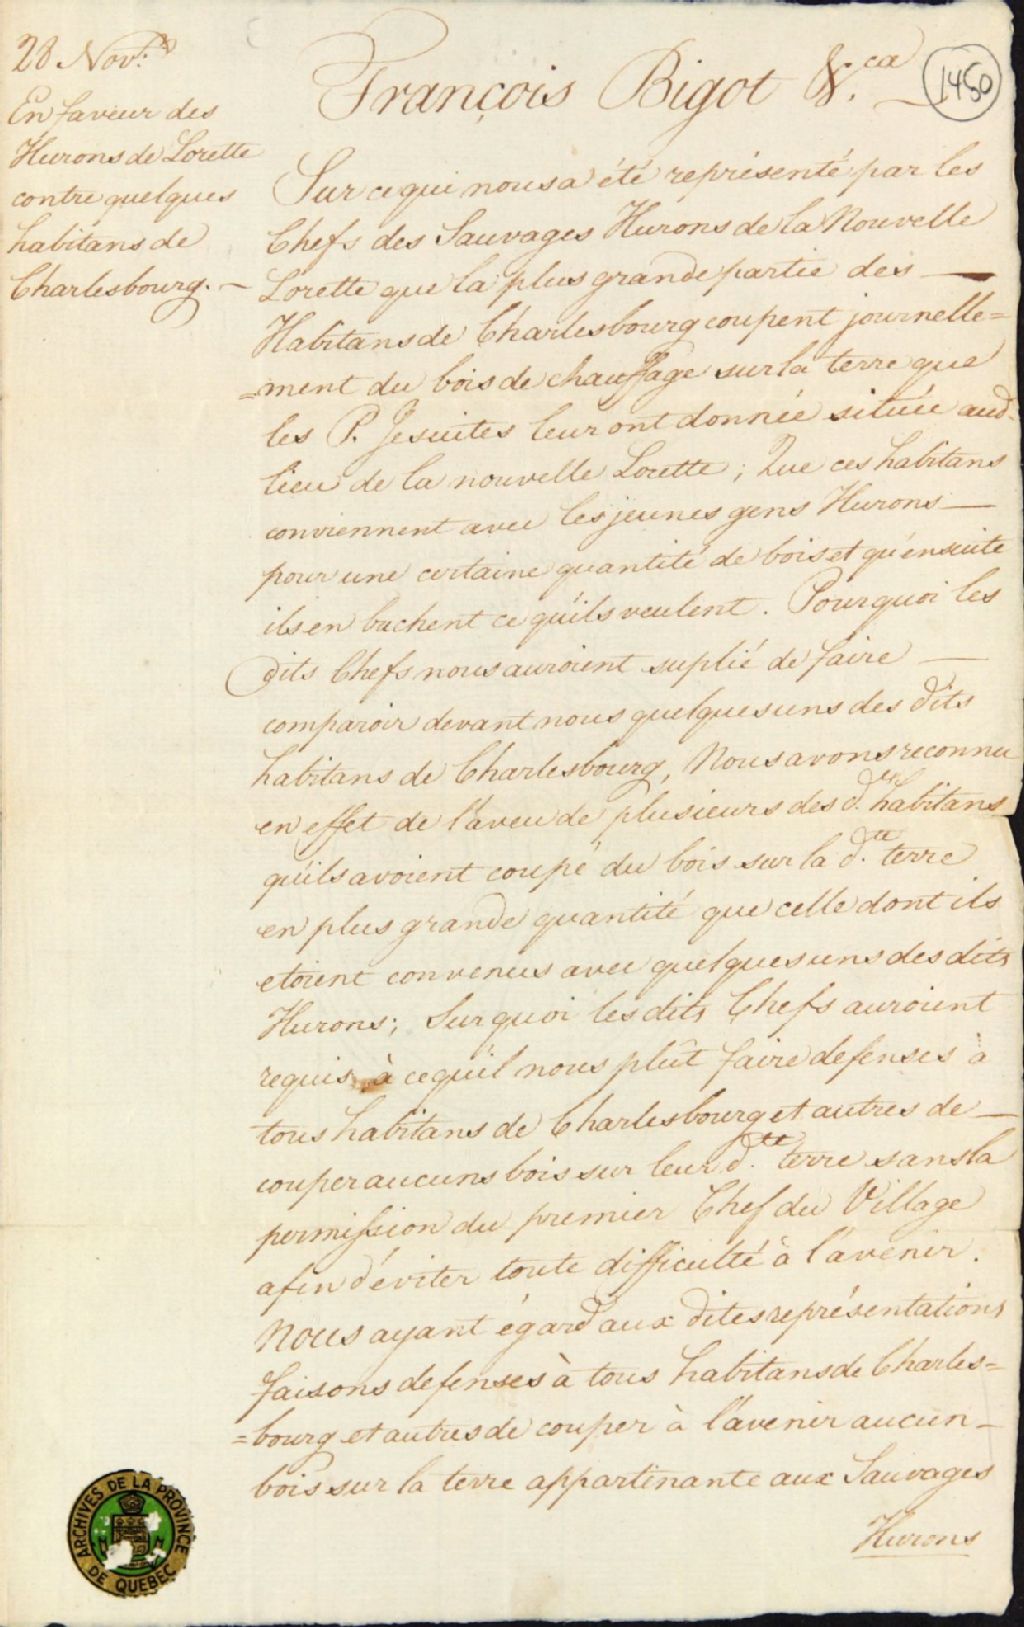 28 Nov.re
En faveur des
Hurons de Lorette
contre quelques
habitans de
Charlesbourg. -
François Bigot &.ca
1450
Sur ce qui nous a été représenté par les
Chefs des Sauvages Hurons de la Nouvelle
Lorette que la plus grande partie des —
Habitans de Charlesbourg coupent journelle=
=ment du bois de chauffage sur la terre que
les P. Jesuites leur ont donnée située aud.
lieu de la nouvelle Lorette ; Que ces habitans
conviennent avec les jeunes gens Hurons —
pour une certaine quantité de bois et qu'ensuite
ils en buchent ce qu'ils veulent. Pourquoi les
dits Chefs nous auroient suplié de faire —
comparoir devant nous quelques uns des dits
habitans de Charlesbourg, Nous avons reconnu
en effet de l'aveu de plusieurs des d.en habitans
qu'ils avoient coupé du bois sur la d.te terre
en plus grande quantité que celle dont ils
etoient convenus avec quelques uns des dits
Hurons ; Sur quoi les dits Chefs auroient
requis à ce qu'il nous plût faire defenses à
tous habitans de Charlesbourg et autres de —
couper aucuns bois sur leur d.te terre sans la
permission du premier Chef du Village
afin d'éviter toute difficulté à l'avenir.
Nous ayant égard aux dites représentations
faisons defenses à tous habitans de Charles=
=bourg et autres de couper à l'avenir aucun —
bois sur la terre appartenante aux Sauvages
Hurons
ARCHIVES DE LA PROVINCE
DE QUEBEC